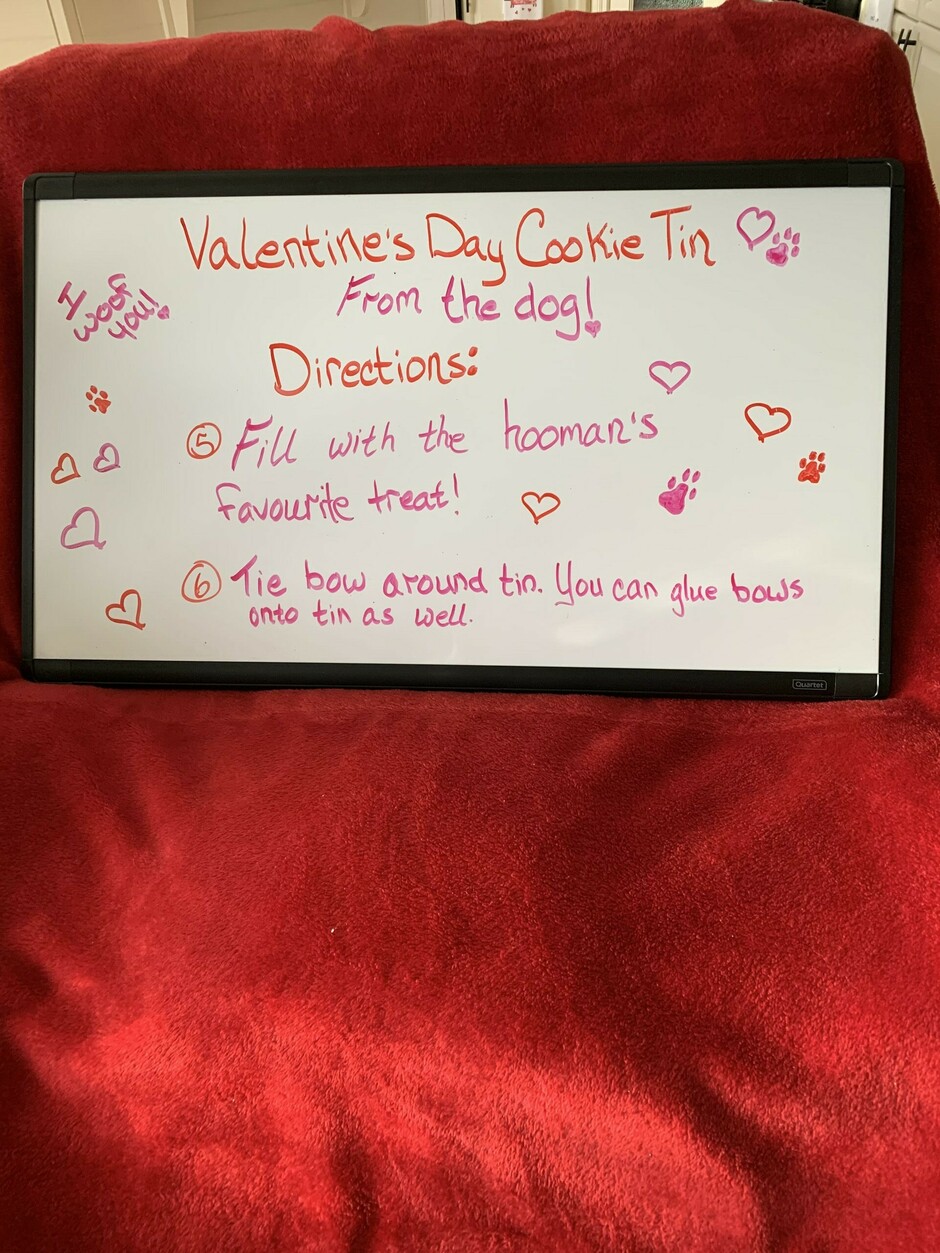 Valentine's Day Cookie Tin
From the dog!
I
woof
you!
Directions:
5 Fill with the hooman's
favourite treat!
6 Tie bow around tin. You can glue bows
onto tin as well.
Quartet